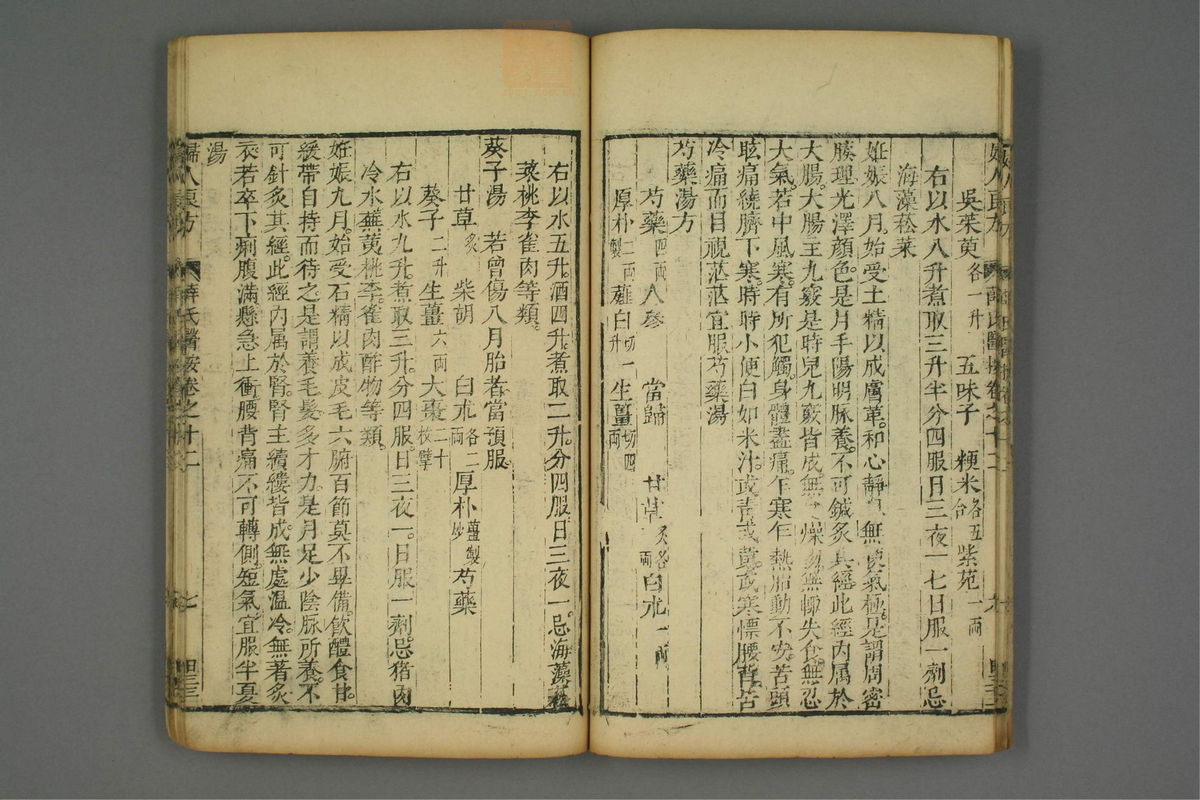 婦人良方 薛氏醫按卷之十二
吳茱萸各一升 五味子 粳米各五合 紫苑一兩
右以水八升煮取三升半分四服日三夜一七日服一劑忌
海藻菘菜
妊娠八月始受土精以成膚革和心靜息無使氣極是謂周密
腠理光澤顏色是月手陽明脉養不可鍼灸其經此經內属於
大腸大腸主九竅是時兒九竅皆成無食燥物無輙失食無忍
大氣若中風寒有所犯觸身體盡痛乍寒乍熱胎動不安苦頭
眩痛繞臍下寒時時小便白如米汁或青或黄或寒慄腰背苦
冷痛而目視茫茫宜服芍藥湯
芍藥湯方
芍藥四兩 人參 當歸 甘草炙各二兩 白朮一兩
厚朴二兩製 薤白切一升 生薑切四兩
右以水五升酒四升煮取二升分四服日三夜一忌海藻菘
菜桃李雀肉等類
葵子湯 若曾傷八月胎者當預服
甘草炙 柴胡 白朮各二兩 厚朴薑製炒 芍藥
葵子二升 生薑六兩 大棗二十枚擘
右以水九升煮取三升分四服日三夜一日服一劑忌猪肉
冷水蕪荑桃李雀肉酢物等類
妊娠九月始受石精以成皮毛六腑百節莫不畢備飲醴食甘
緩帶自持而待之是謂養毛髮多才力是月足少陰脉所養不
可針灸其經此經內属於腎腎主續縷皆成無處温冷無著炙
衣若卒下痢腹滿懸急上衝腰背痛不可轉側短氣宜服半夏
湯
婦人良方 薛氏醫按卷之十二